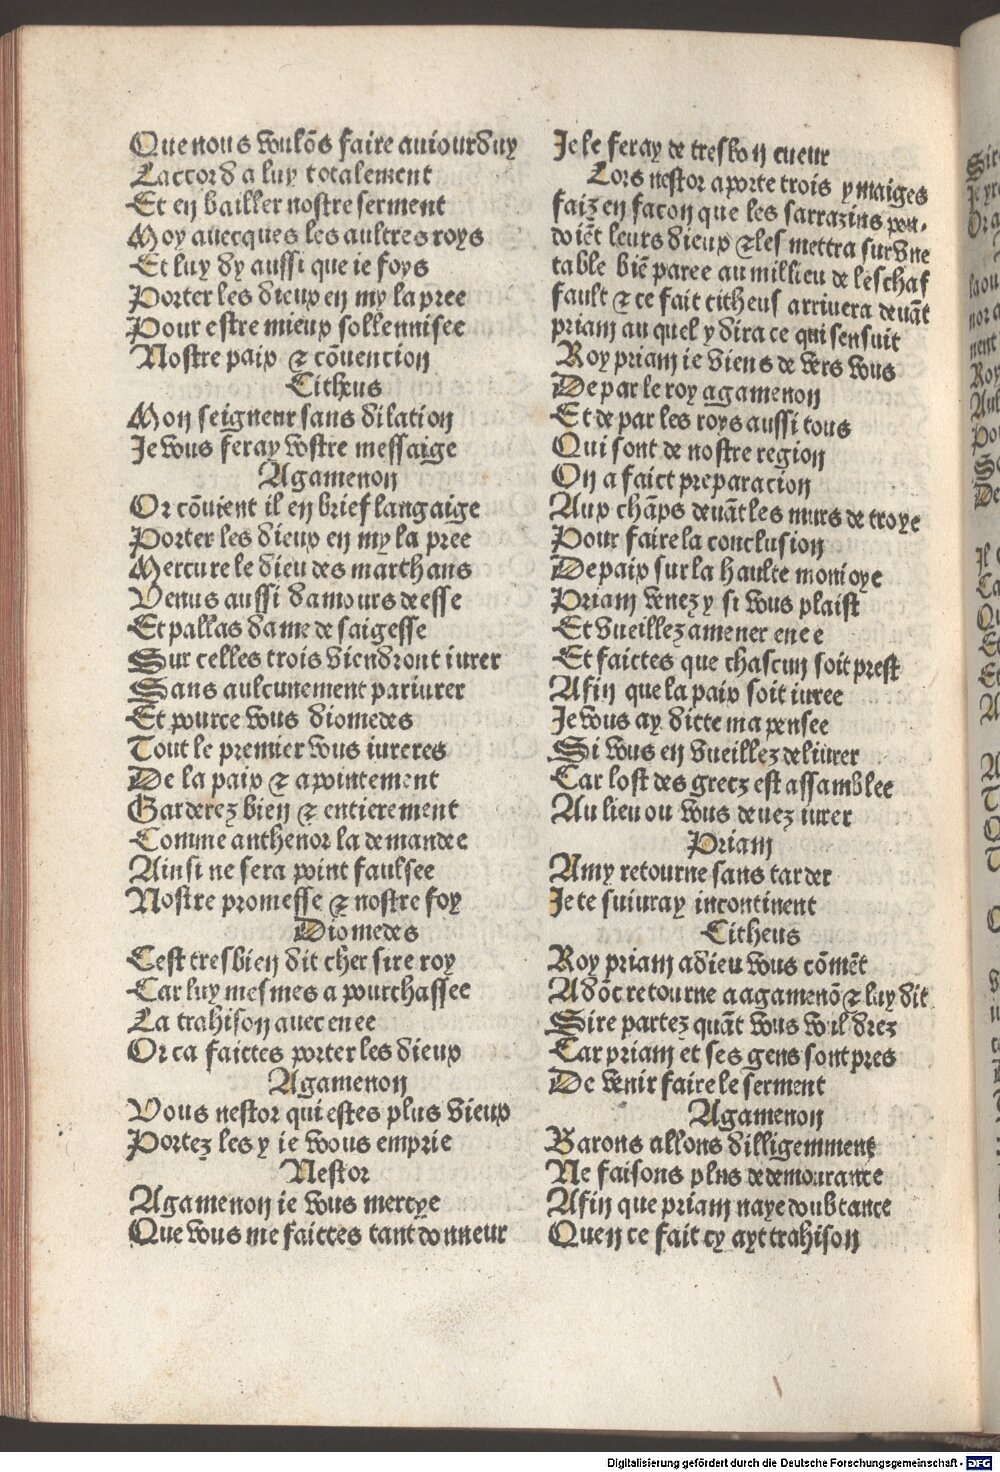 Que nous voulōs faire auiourduy
Laccord a luy totalement
Et en bailler nostre serment
Moy auecques les aultres roys
Et luy dy aussi que ie foys
Porter les dieux en my la pree
Pour estre mieux sollennisee
Nostre paix & cōuencion
Citheus
Mon seigneur sans dilation
Je vous feray vostre messaige
Agamenon
Or cōuient il en brief langaige
Porter les dieux en my la pree
Mercure le dieu des marchans
Venus aussi damours deesse
Et pallas dame de saigesse
Sur celles trois viendront iurer
Sans aulcunement pariurer
Et pource vous diomedes
Tout le premier vous iureres
De la paix & apointement
Garderez bien & entierement
Comme anthenor la demandee
Ainsi ne sera point faulsee
Nostre promesse & nostre foy
Diomedes
Cest tresbien dit cher sire roy
Car luy mesmes a pourchassee
La trahison auec enee
Or ca faictes porter les dieux
Agamenon
Vous nestor qui estes plus vieux
Portez les y ie vous emprie
Nestor
Agamenon ie vous mercye
Que vous me faictes tant donneur
Je le feray de tresbon cueur
Lors nestor aporte trois ymaiges
faiz en facon que les sarrazins pou-
doiēt leurs dieux & les mettra sur vne
table biē paree au millieu de leschaf
fault & ce fait citheus arriuera deuāt
priam au quel y dira ce qui sensuit
Roy priam ie viens de vers vous
De par le roy agamenon
Et de par les roys aussi tous
Qui sont de nostre region
On a faict preparacion
Aux chāps deuāt les murs de troye
Pour faire la conclusion
De paix sur la haulte monioye
Priam venez y si vous plaist
Et vueillez amener enee
Et faictes que chascun soit prest
Afin que la paix soit iuree
Je vous ay dicte ma pensee
Si vous en vueillez deliurer
Car lost des grecz est assamblee
Au lieu ou vous deuez iurer
Priam
Amy retourne sans tarder
Je te suiuray incontinent
Citheus
Roy priam adieu vous cōmēt
Adōc retourne a agamenō & luy dit
Sire partez quāt vous vouldrez
Car priam et ses gens sont pres
De venir faire le serment
Agamenon
Barons allons dilligemment
Ne faisons plus de demourance
Afin que priam naye doubtance
Quen ce fait cy ayt trahison
Digitalisierung gefördert durch die Deutsche Forschungsgemeinschaft - DFG